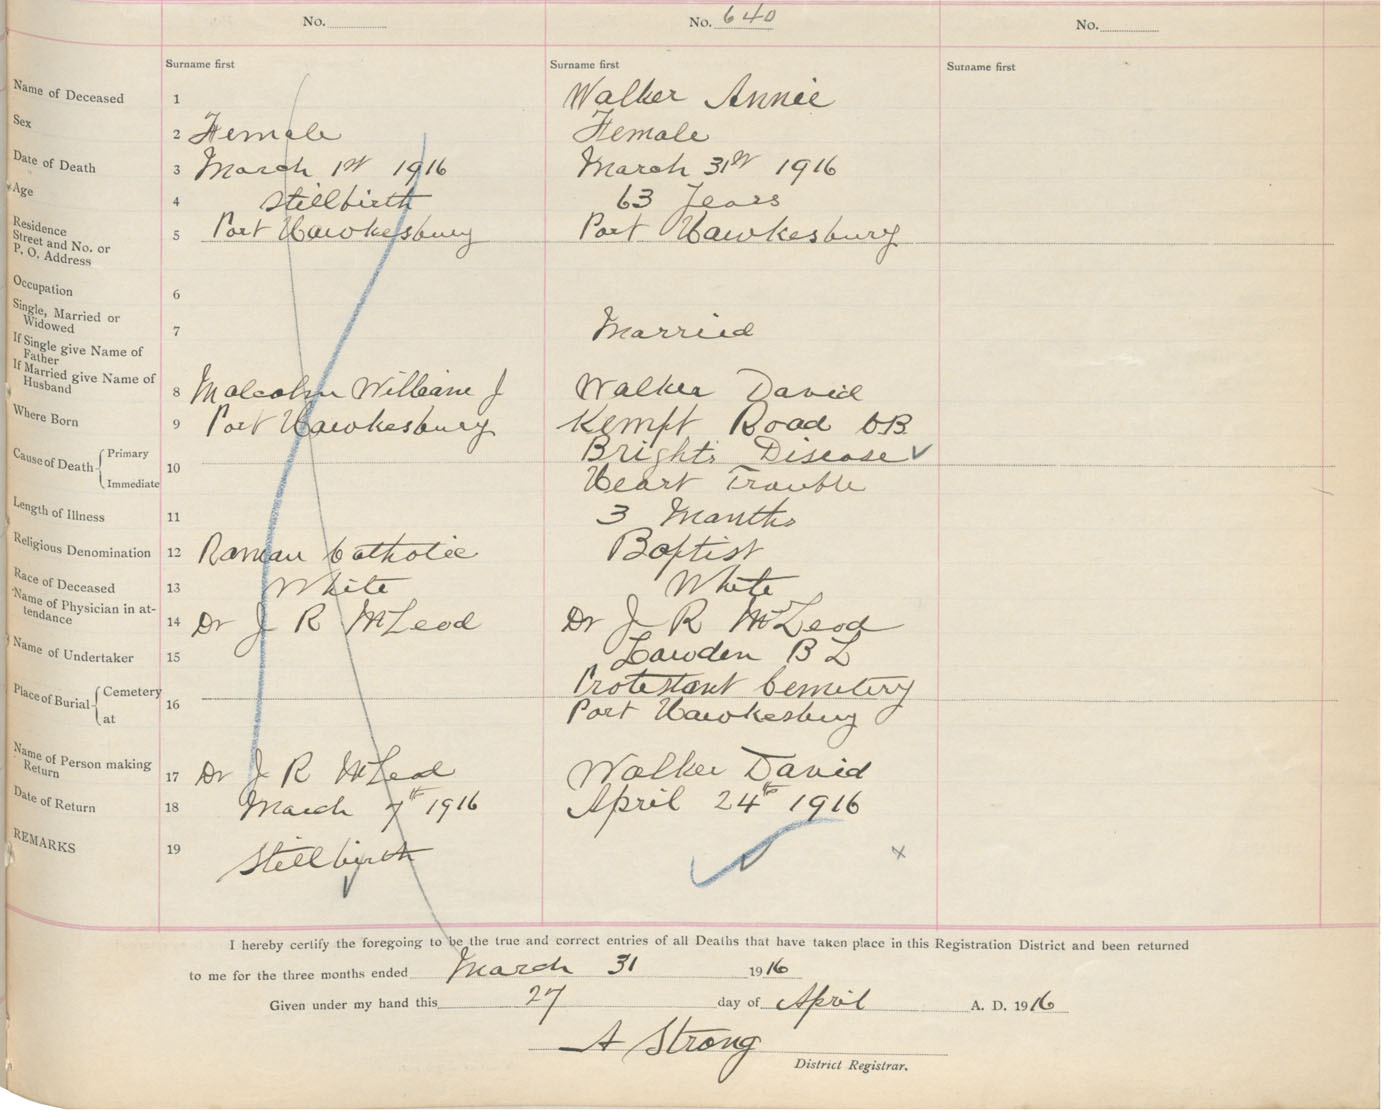 No.
No. 640
No.
Surname first
Surname first
Surname first
Name of Deceased 1 Walker Annie
Sex 2 Female Female
Date of Death 3 March 1st 1916 March 31st 1916
Age 4 Stillbirth 63 Years
Residence
Street and No. or
P. O. Address 5 Port Hawkesbury Port Hawkesbury
Occupation 6
Single, Married or
Widowed 7 Married
If Single give Name of
Father
If Married give Name of
Husband 8 Malcolm William J Walker David
Where Born 9 Port Hawkesbury Kempt Road CB
Cause of Death Primary Brights Disease
10
Immediate Heart Trouble
Length of Illness 11 3 Months
Religious Denomination 12 Roman Catholic Baptist
Race of Deceased 13 White White
Name of Physician in at-
tendance 14 Dr J R McLeod Dr J R McLeod
Name of Undertaker 15 Lawden B L
Place of Burial Cemetery Protestant Cemetery
16
at Port Hawkesbury
Name of Person making
Return 17 Dr J R McLeod Walker David
Date of Return 18 March 7th 1916 April 24th 1916
REMARKS 19 Stillbirth
I hereby certify the foregoing to be the true and correct entries of all Deaths that have taken place in this Registration District and been returned
to me for the three months ended March 31 1916
Given under my hand this 27 day of April A. D. 1916
A Strong
District Registrar.